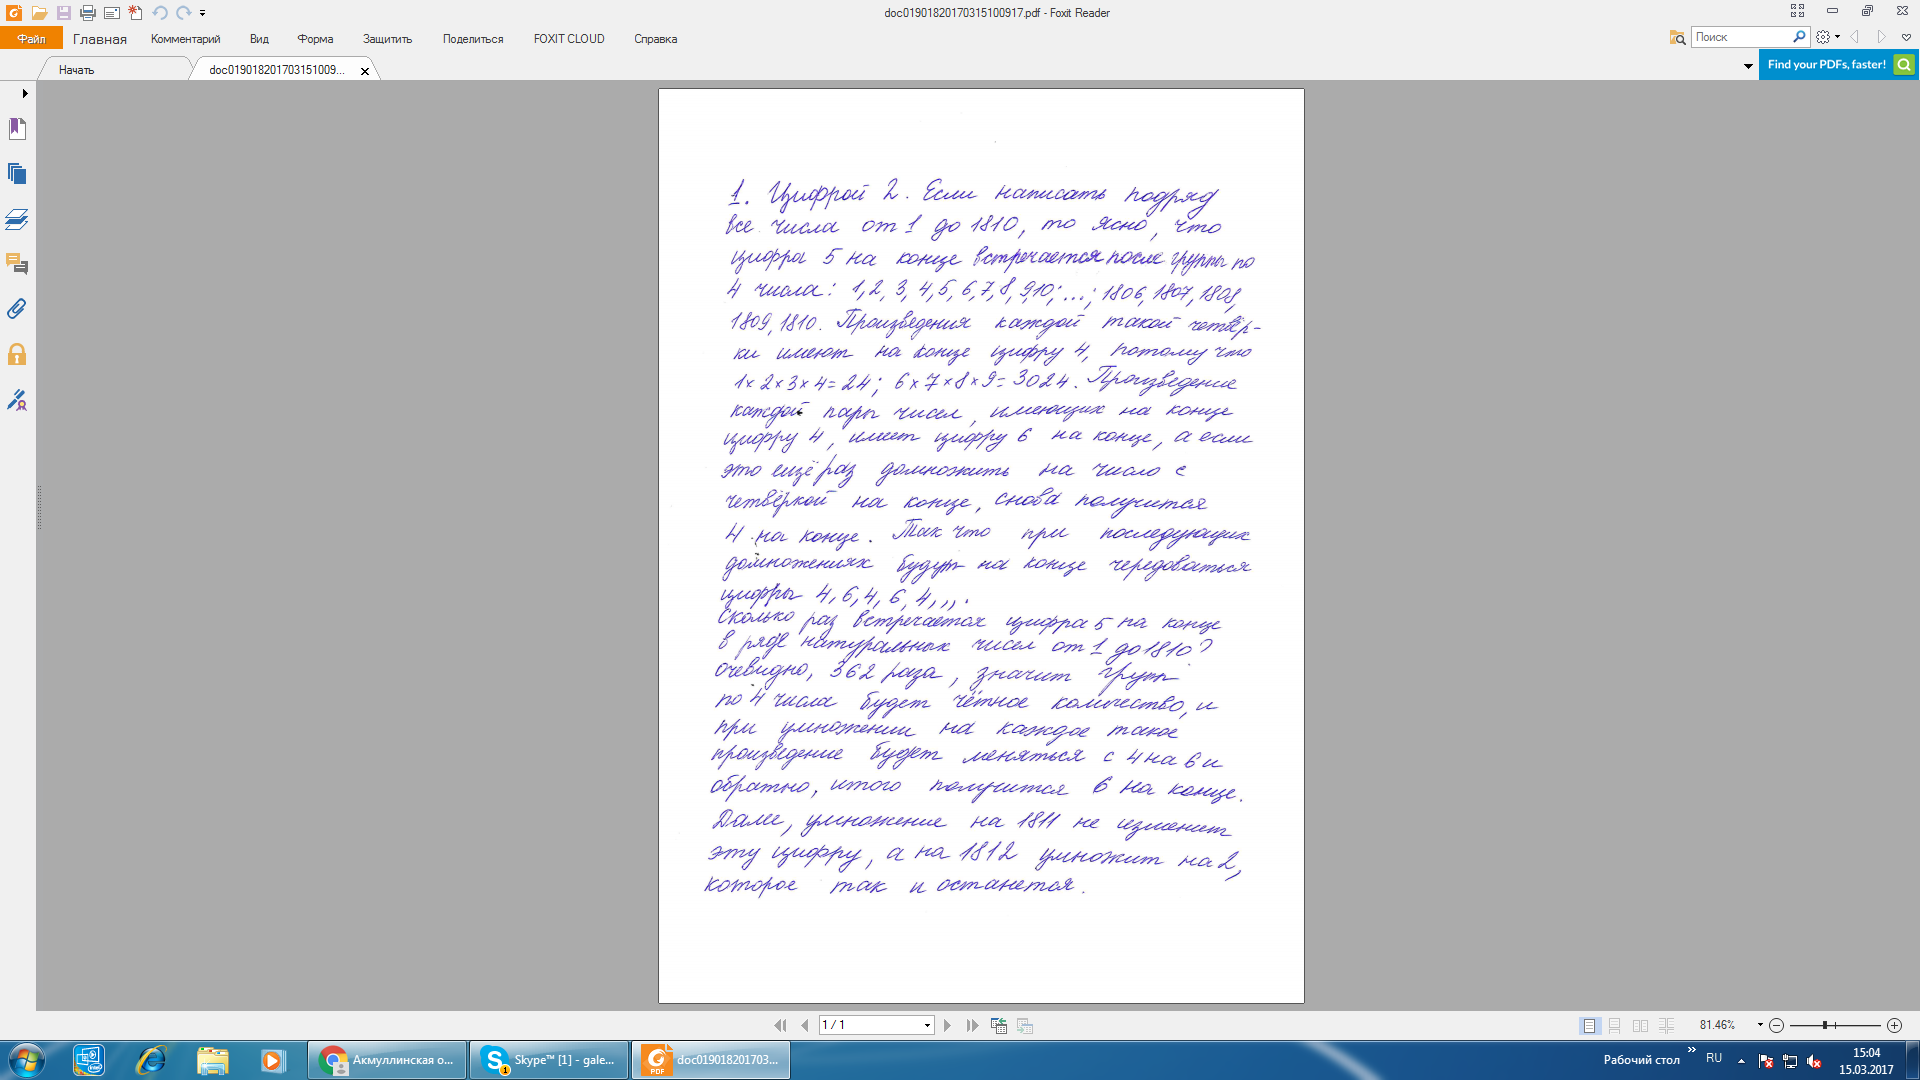 doc01901820170315100917.pdf - Foxit Reader
Файл Главная Комментарий Вид Форма Защитить Поделиться FOXIT CLOUD Справка Поиск
Начать doc019018201703151009... Find your PDFs, faster!
1. Цифрой 2. Если написать подряд
все числа от 1 до 1810, то ясно, что
цифры 5 на конце встречается после группы по
4 числа: 1, 2, 3, 4, 5, 6, 7, 8, 9,10; ...; 1806, 1807, 1808,
1809, 1810. Произведения каждой такой четвёр-
ки имеют на конце цифру 4, потому что
1×2×3×4=24; 6×7×8×9=3024. Произведение
каждой пары чисел, имеющих на конце
цифру 4, имеет цифру 6 на конце, а если
это ещё раз домножить на число с
четвёркой на конце, снова получится
4 на конце. Так что при последующих
домножениях будут на конце чередоваться
цифры 4, 6, 4, 6, 4,,,.
Сколько раз встречается цифра 5 на конце
в ряде натуральных чисел от 1 до 1810?
очевидно, 362 раза, значит групп
по 4 числа будет чётное количество, и
при умножении на каждое такое
произведение будет меняться с 4 на 6 и
обратно, итого получится 6 на конце.
Далее, умножение на 1811 не изменит
эту цифру, а на 1812 умножит на 2,
которое так и останется.
1 / 1 81.46%
Акмуллинская о... Skype™ [1] - gale... doc019018201703... Рабочий стол » RU 15:04
15.03.2017